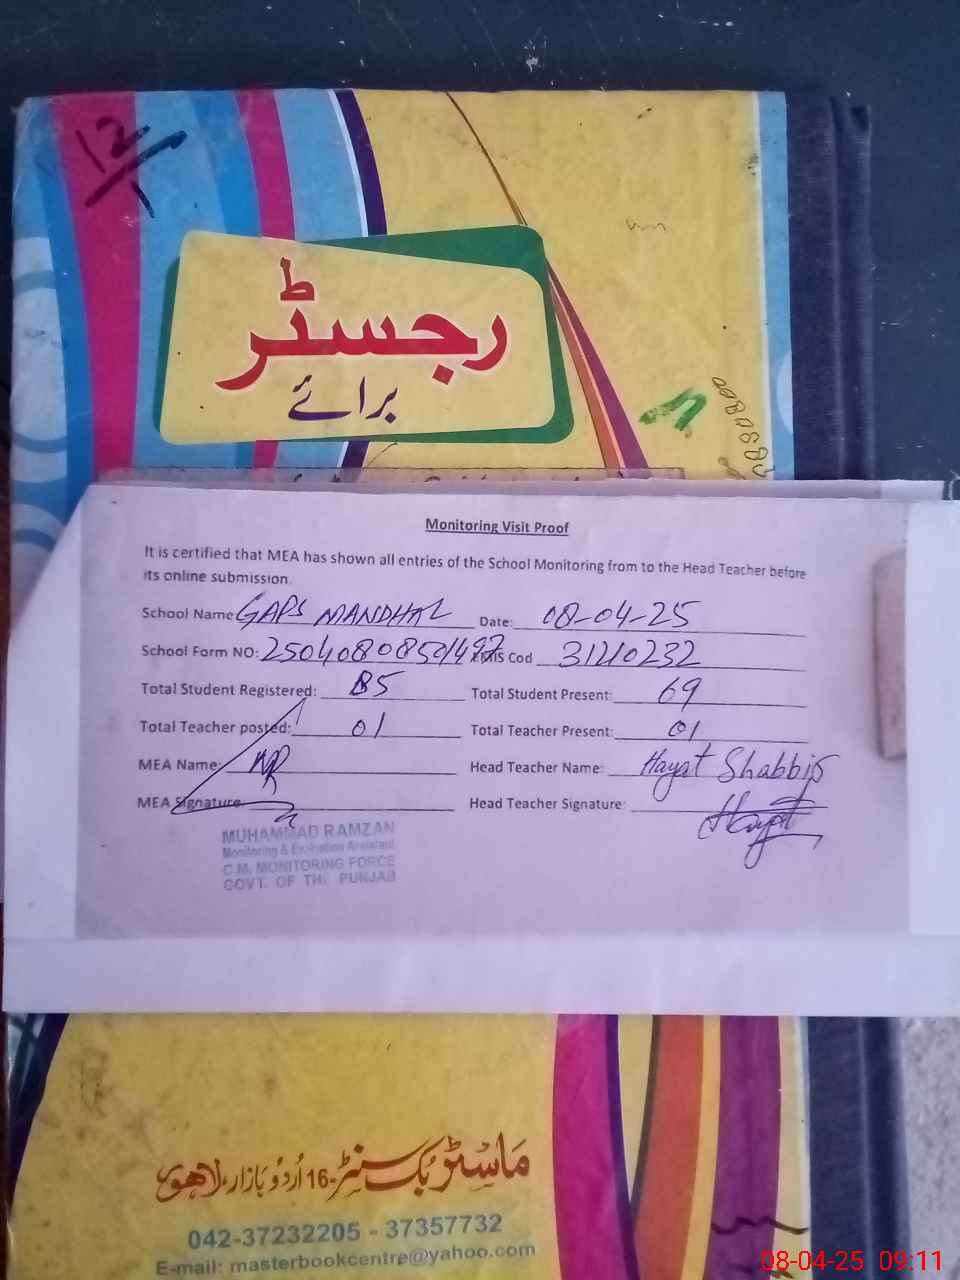 12/1
رجسٹر
برائے
Monitoring Visit Proof
It is certified that MEA has shown all entries of the School Monitoring from to the Head Teacher before
its online submission.
School Name GAPS MANDHAL Date: 08-04-25
School Form NO: 25040808501497 EMIS Cod 31210232
Total Student Registered: 85 Total Student Present: 69
Total Teacher posted: 01 Total Teacher Present: 01
MEA Name: MR Head Teacher Name: Hayat Shabbir
MEA Signature Head Teacher Signature: Hayat
MUHAMMAD RAMZAN
Monitoring & Evaluation Assistant
C.M. MONITORING FORCE
GOVT. OF THE PUNJAB
ماسٹر بک سنٹر-16 اُردُو بازار، لاہور
042-37232205 - 37357732
E-mail: masterbookcentre@yahoo.com
08-04-25 09:11